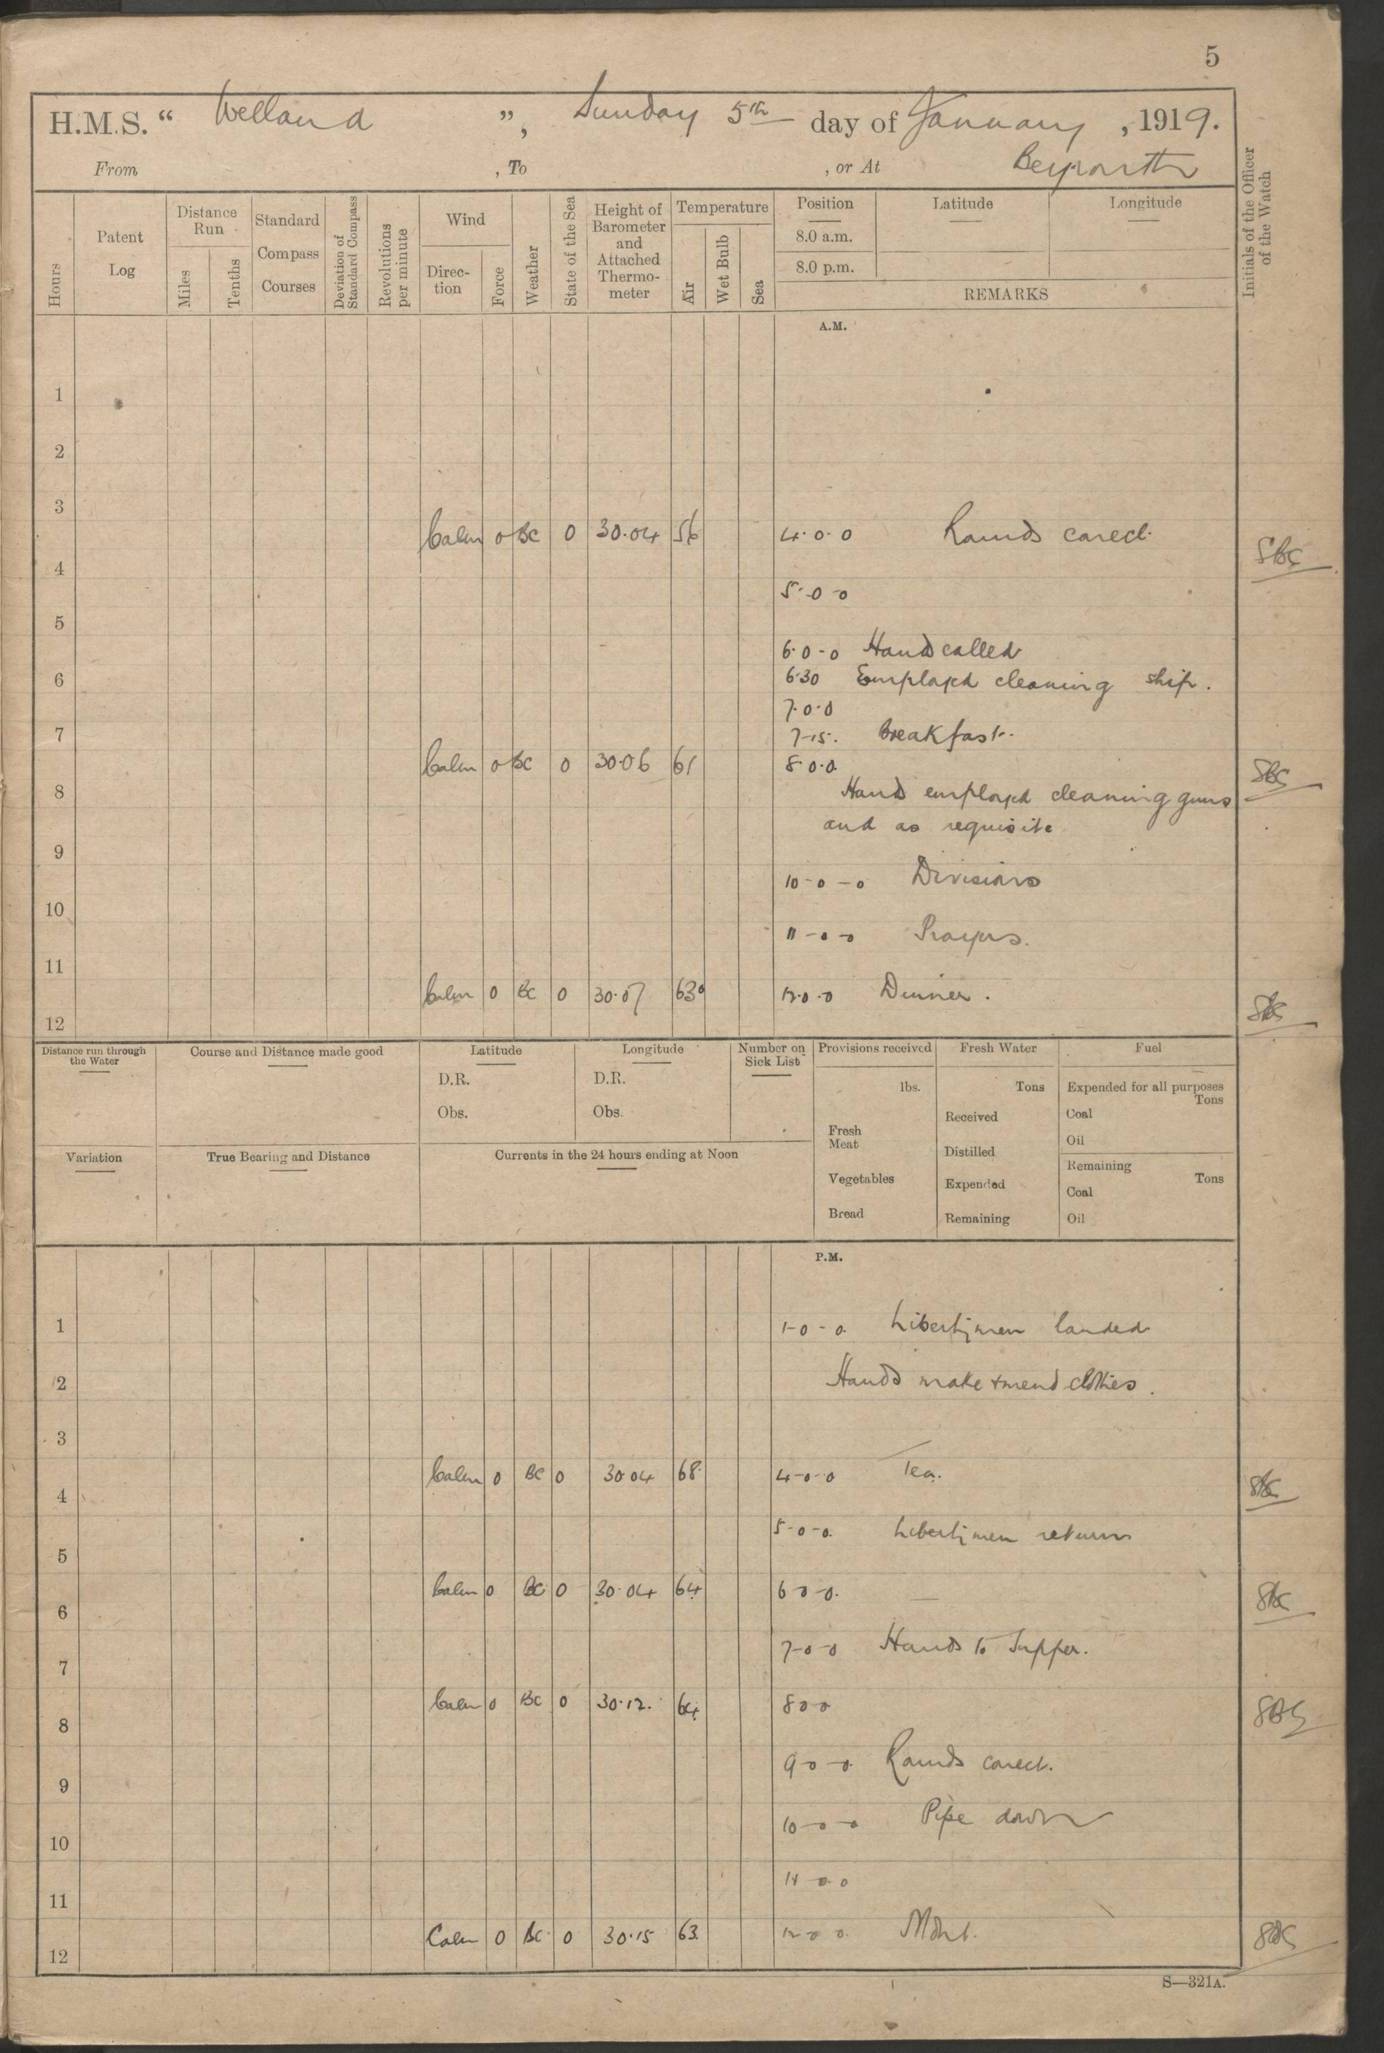 5
H.M.S. “ Welland ”, Sunday 5th day of January, 1919.
From , To , or At Beyrouth
Hours
Patent Log
Distance Run
Miles
Tenths
Standard Compass Courses
Deviation of Standard Compass
Revolutions per minute
Wind
Direc-tion
Force
Weather
State of the Sea
Height of Barometer and Attached Thermo-meter
Temperature
Air
Wet Bulb
Sea
Position
Latitude
Longitude
8.0 a.m.
8.0 p.m.
REMARKS
Initials of the Officer of the Watch
A.M.
1
2
3
Calm 0 BC 0 30.04 56 4.0.0 Rounds corect.
4
5-0-0
5
6.0-0 Hands called
6 6.30 Employed cleaning ship.
7.0.0
7 7-15. Breakfast.
Calm 0 BC 0 30.06 61 8.0.0
8 Hands employed cleaning guns
and as requisite
9
10-0-0 Divisions
10
11-0-0 Prayers.
11
Calm 0 BC 0 30.07 63 12.0.0 Dinner.
12
Distance run through the Water
Course and Distance made good
Latitude
D.R.
Obs.
Longitude
D.R.
Obs.
Number on Sick List
Provisions received
lbs.
Fresh Meat
Vegetables
Bread
Fresh Water
Tons
Received
Distilled
Expended
Remaining
Fuel
Expended for all purposes
Tons
Coal
Oil
Remaining
Tons
Coal
Oil
Variation
True Bearing and Distance
Currents in the 24 hours ending at Noon
P.M.
1 1-0-0. Libertymen landed
2 Hands make + mend clothes.
3
Calm 0 BC 0 30.04 68 4-0-0 Tea.
4
5-0-0. Libertymen return
5
Calm 0 BC 0 30.04 64 6 0 0.
6
7-0-0 Hands to Supper.
7
Calm 0 BC 0 30.12. 64 8 0 0
8
9 0 0. Rounds corect.
9
10-0-0 Pipe down
10
11 0 0
11
Calm 0 BC. 0 30.15 63 12 0 0. Mdnt.
12
S—321A.